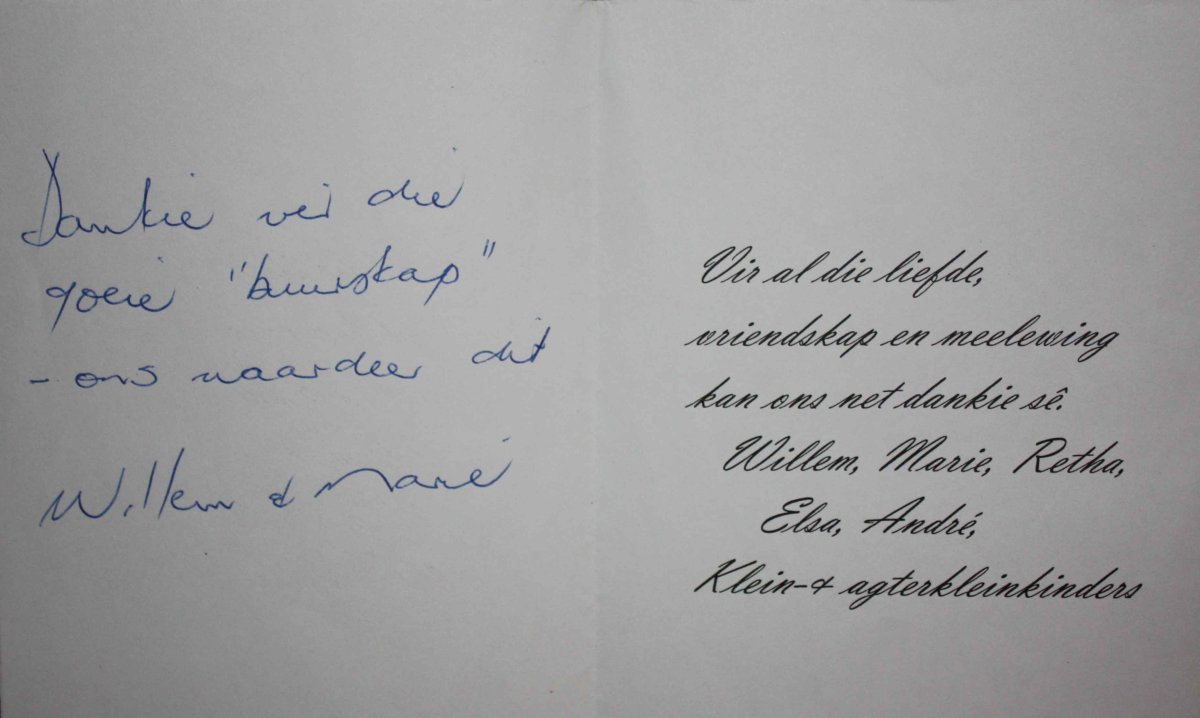 Dankie vir die
goeie "buurskap"
- ons waardeer dit
Willem & Marié
Vir al die liefde,
vriendskap en meelewing
kan ons net dankie sê.
Willem, Marie, Retha,
Elsa, André,
Klein-& agterkleinkinders